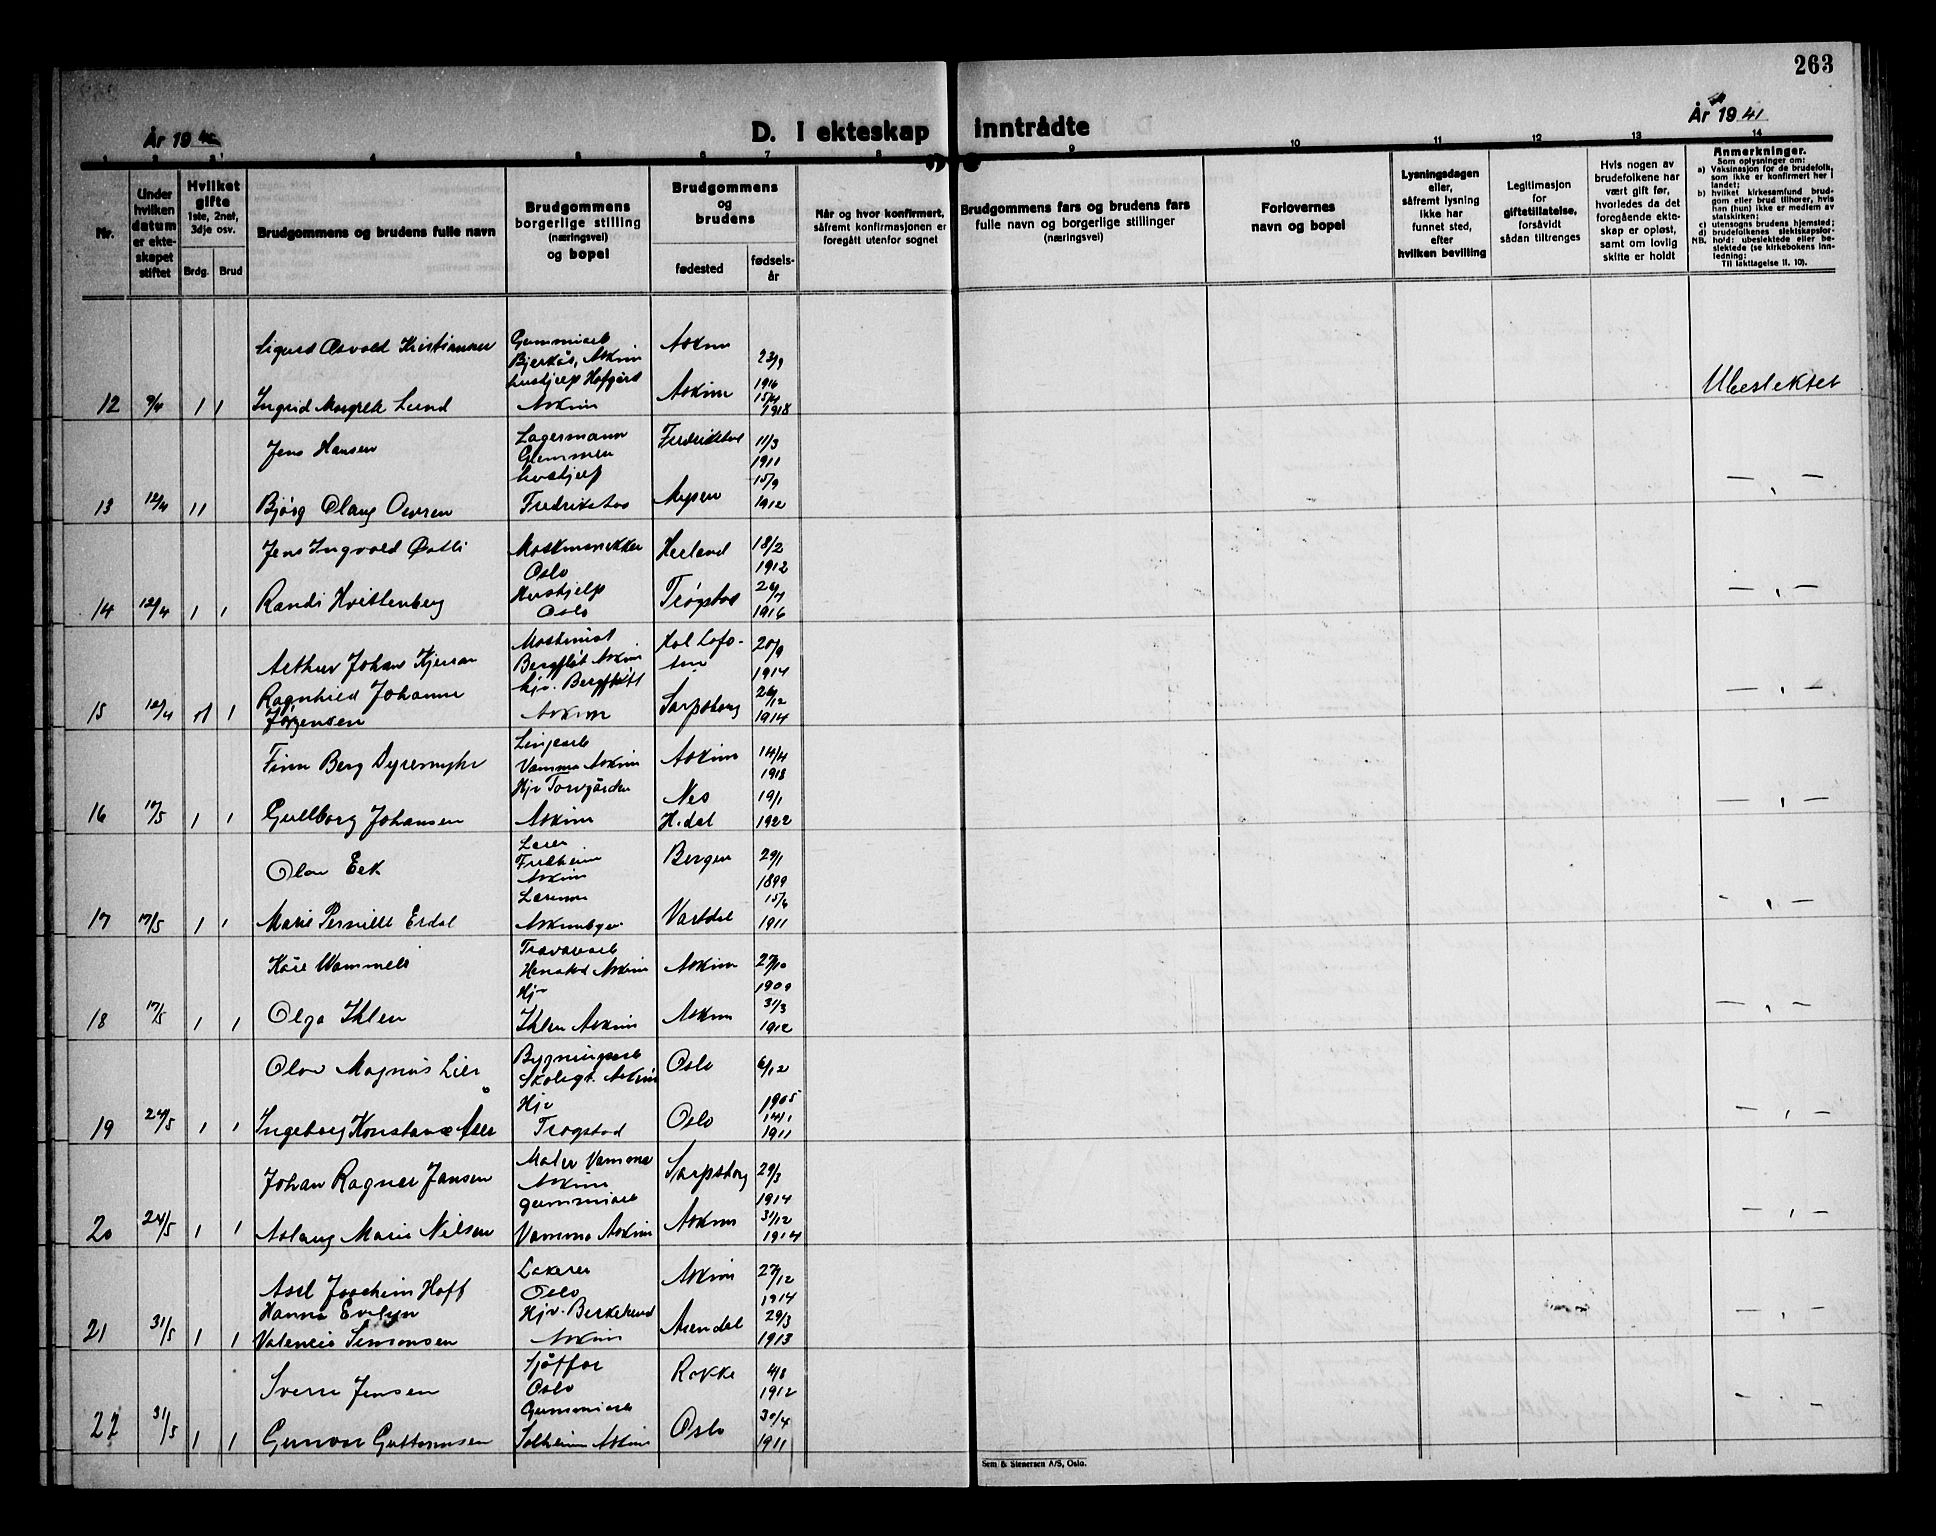 263
År 19
D. I ekteskap inntrådte
År 19 41
1 2 3 4 5 6 7 8 9 10 11 12 13 14
Nr.
Under hvilken datum er ekteskapet stiftet
Hvilket gifte 1ste, 2net, 3dje osv.
Brdg. Brud
Brudgommens og brudens fulle navn
Brudgommens borgerlige stilling (næringsvei) og bopel
Brudgommens og brudens
fødested
fødselsår
Når og hvor konfirmert, såfremt konfirmasjonen er foregått utenfor sognet
Brudgommens fars og brudens fars fulle navn og borgerlige stillinger (næringsvei)
Forlovernes navn og bopel
Lysningsdagen eller, såfremt lysning ikke har funnet sted, efter hvilken bevilling
Legitimasjon for giftetillatelse, forsåvidt sådan tiltrenges
Hvis nogen av brudefolkene har vært gift før, hvorledes da det foregående ekteskap er opløst, samt om lovlig skifte er holdt
Anmerkninger.
Som oplysninger om:
a) Vaksinasjon for de brudefolk, som ikke er konfirmert her i landet;
b) hvilket kirkesamfund brudgom eller brud tilhører, hvis han (hun) ikke er medlem av statskirken;
c) utensogns brudens hjemsted;
d) brudefolkenes slektskapsforhold: ubeslektede eller beslektede (se kirkebokens innledning;
NB.
Til iakttagelse II. 10).
Sigurd Osvald Kristiansen Gummiarb Bjerkås, Askim Askim 23/9 1916
12 9/4 1 1 Ingrid Margrete Lund hushjelp Hofgård Askim Askim 15/4 1918 Ubeslektet
Jens Hansen Lagermann Glemmen Fredrikstad 11/3 1911
13 12/4 1 1 Bjørg Olaug hushjelp Fredrikstad Mysen 15/9 1912 — , —
Jens Ingvald Østli Oslo 18/2 1912
14 12/4 1 1 Randi Hvittenberg Hushjelp Oslo Trøgstad 1916 — , —
Arthur Johan Maskinist Bergfløt Askim 20/9 1914
15 12/4 1 Ragnhild Johanne Jørgensen hjv. Bergfløtt Askim Sarpsborg 1914 — , —
Finn Berg Dyremyhr Linjearb Vamma Askim Askim 14/4 1918
16 1 1 Gullborg Johansen Hjv Torvgården Askim Nes H.dal 19/1 1922 — , —
Olav Eek Lærer Fredheim Askim Bergen 29/1 1899
17 17/5 1 1 Marie Pernille Erdal Askimbyen Vartdal 1911 — , —
Kåre Wammeli Henstad Askim Askim 1909
18 17/5 1 1 Olga Ihlen Hjv Ihlen Askim Askim 31/3 1912 — , —
Olav Magnus Lier Bygningsarb Skolegt. Askim Oslo 6/12 1905
19 24/5 1 1 Ingeborg Konstanse Hjv Trøgstad Oslo 14/1 1911 — , —
Johan Ragnar Jansen Maler Vamma Askim Sarpsborg 29/3 1914
20 24/5 1 1 Aslaug Marie Nilsen gummiarb Vamma Askim Askim 31/12 1914 — , —
Joachim Hoff Oslo Askim 27/12 1914
21 31/5 1 1 Hanna Evelyn Valencia Simonsen Hjv. Askim Arendal 29/3 1913 — , —
Sverre Jensen Sjåffør Oslo Rokke 4/8 1912
22 31/5 1 1 Gunvor Guttormsen Gummiarb Solheim Askim Oslo 30/4 1911 — , —
Sem & Stenersen A/S, Oslo.